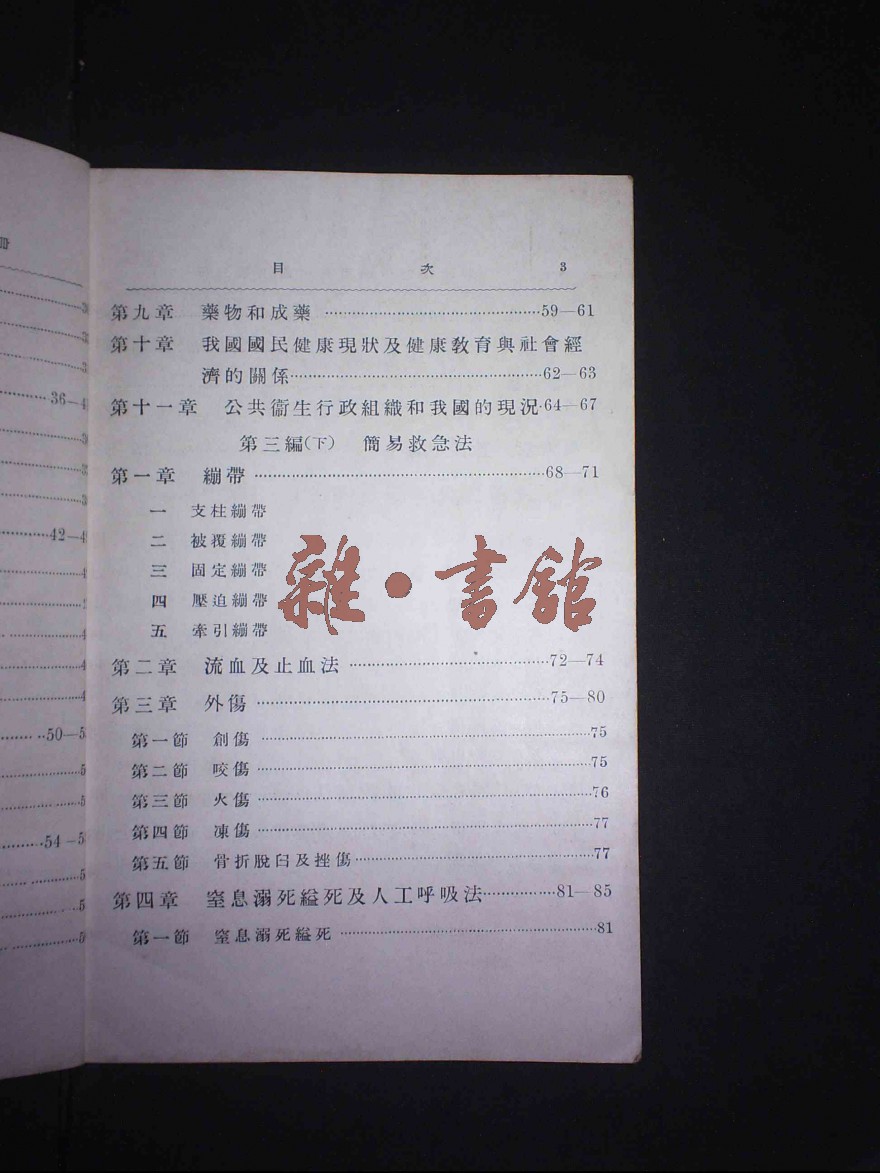 目 次 3
第九章 藥物和成藥 59—61
第十章 我國國民健康現狀及健康教育與社會經
濟的關係 62—63
第十一章 公共衞生行政組織和我國的現況 64—67
第三編(下) 簡易救急法
第一章 繃帶 68—71
一 支柱繃帶
二 被覆繃帶
三 固定繃帶
四 壓迫繃帶
五 牽引繃帶
雜·書館
第二章 流血及止血法 72—74
第三章 外傷 75—80
第一節 創傷 75
第二節 咬傷 75
第三節 火傷 76
第四節 凍傷 77
第五節 骨折脫臼及挫傷 77
第四章 窒息溺死縊死及人工呼吸法 81—85
第一節 窒息溺死縊死 81